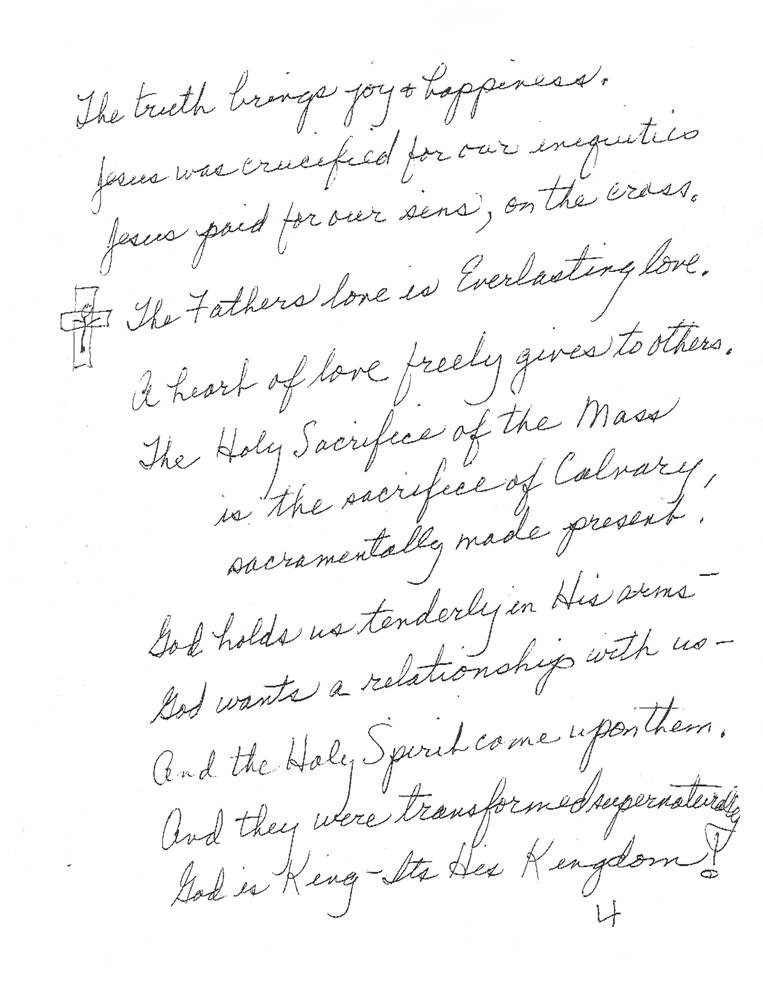 The truth brings joy & happiness.
Jesus was crucified for our inequities
Jesus paid for our sins, on the cross.
The Fathers love is Everlasting love.
A heart of love freely gives to others.
The Holy Sacrifice of the Mass
is the sacrifice of Calvary,
sacramentally made present.
God holds us tenderly in His arms -
God wants a relationship with us -
And the Holy Spirit came upon them.
And they were transformed supernaturally
God is King - Its His Kingdom!
4